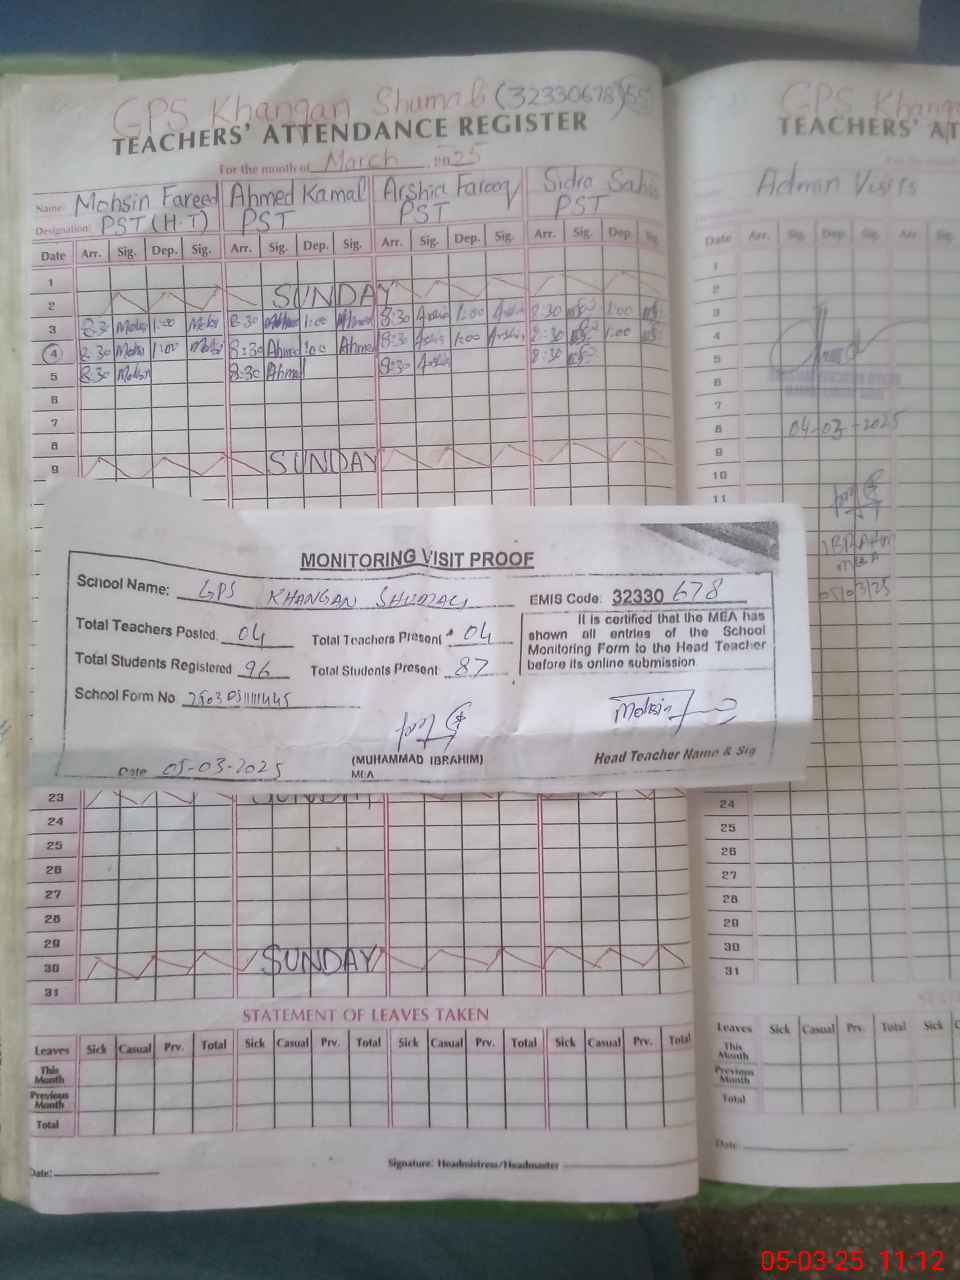 GPS Khangan Shumali (32330678) 55
TEACHERS' ATTENDANCE REGISTER
For the month of March 2025
Name: Mohsin Fareed Ahmed Kamal Arshia Farooq Sidra
Designation: PST (H.T) PST PST PST
Date Arr. Sig. Dep. Sig. Arr. Sig. Dep. Sig. Arr. Sig. Dep. Sig. Arr. Sig. Dep. Sig.
1
2 SUNDAY
3 8:30 Mohsin 1:00 Mohsin 8:30 Ahmed 1:00 Ahmed 8:30 Arshia 1:00 Arshia 8:30 1:00
4 8:30 Mohsin 1:00 Mohsin 8:30 Ahmed 1:00 Ahmed 8:30 Arshia 1:00 Arshia 8:30 1:00
5 8:30 Mohsin 8:30 Ahmed 8:30 Arshia 8:30
6
7
8
9 SUNDAY
MONITORING VISIT PROOF
School Name: GPS KHANGAN SHUMALI
EMIS Code: 32330 678
Total Teachers Posted 04 Total Teachers Present 04
Total Students Registered 96 Total Students Present 87
School Form No 25030511111445
It is certified that the MEA has
shown all entries of the School
Monitoring Form to the Head Teacher
before its online submission
Mohsin
Date 05-03-2025
(MUHAMMAD IBRAHIM)
MEA
Head Teacher Name & Sig
23 SUNDAY
24
25
26
27
28
29
30 SUNDAY
31
STATEMENT OF LEAVES TAKEN
Leaves Sick Casual Prv. Total Sick Casual Prv. Total Sick Casual Prv. Total Sick Casual Prv. Total
This Month
Previous Month
Total
Date: Signature: Headmistress/Headmaster
GPS Khanga
TEACHERS' AT
Admin Visits
Date Arr. Sig. Dep. Sig. Arr. Sig.
1
2
3
4
5
6
7
8 04-03-2025
9
10
11
IBRAHIM
MEA
05/03/25
24
25
26
27
28
29
30
31
Leaves Sick Casual Prv. Total Sick
This Month
Previous Month
Total
Date:
05-03-25 11:12